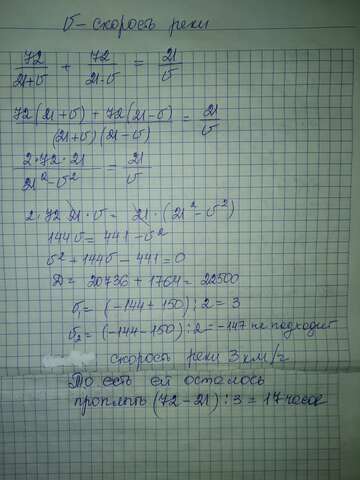 v - скорость реки
72/(21+v) + 72/(21-v) = 21/v
(72(21+v) + 72(21-v))/((21+v)(21-v)) = 21/v
(2·72·21)/(21²-v²) = 21/v
2·72·21·v = 21·(21²-v²)
144v = 441-v²
v²+144v-441=0
D = 20736+1764=22500
v₁ = (-144+150):2=3
v₂ = (-144-150):2=-147 не подходит
скорость реки 3 км/г
То есть ей осталось
проплыть (72-21):3=17 часов